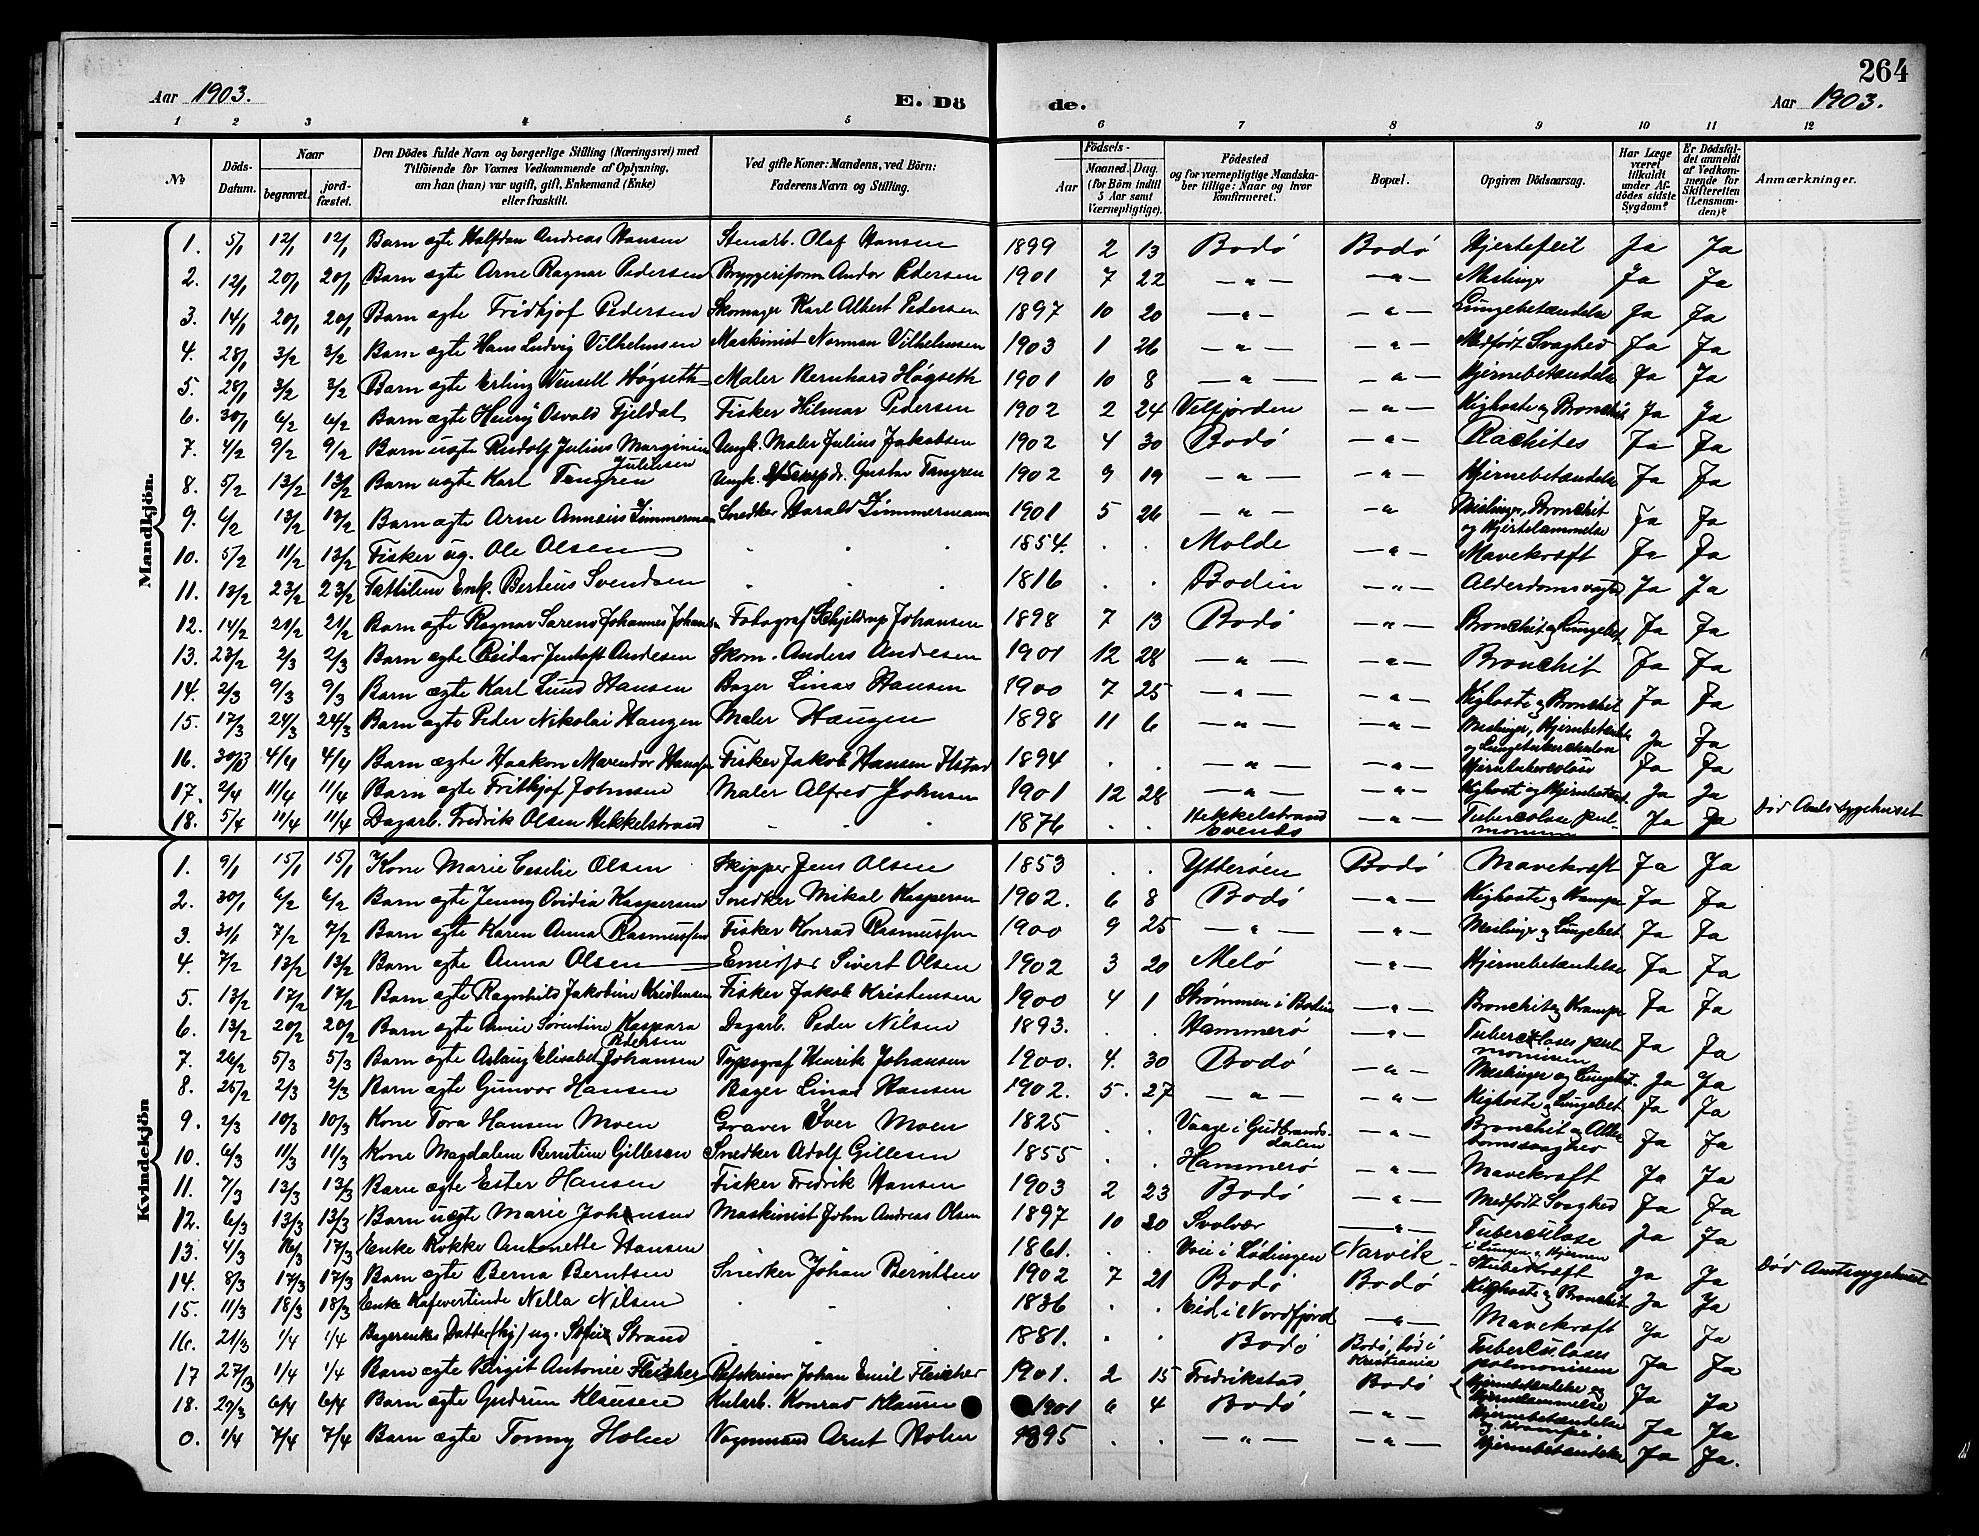 264
Aar 1903.
E. Dö
de.
Aar 1903.
1 2 3 4 5 6 7 8 9 10 11 12
No
Döds-Datum.
Naar
begravet.
jord-fæstet.
Den Dödes fulde Navn og borgerlige Stilling (Næringsvei) med
Tilföiende for Voxnes Vedkommende af Oplysning,
om han (hun) var ugift, gift, Enkemand (Enke)
eller fraskilt.
Ved gifte Koner: Mandens, ved Börn:
Faderens Navn og Stilling.
Födsels-
Aar
Maaned.
Dag.
(for Börn indtil
5 Aar samt
Værnepligtige).
Födested
og for værnepligtige Mandska-
ber tillige: Naar og hvor
konfirmeret.
Bopæl.
Opgiven Dödsaarsag.
Har Læge
været
tilkaldt
under Af-
dödes sidste
Sygdom?
Er Dödsfal-
det anmeldt
af Vedkom-
mende for
Skifteretten
(Lensman-
den)?
Anmærkninger.
Mandkjön.
1. 5/1 12/1 12/1 Barn ægte Halfdan Andreas Hansen Stenarb. Olaf Hansen 1899 2 13 Bodö Bodö Hjertefeil Ja Ja
2. 12/1 20/1 20/1 Barn ægte Arne Ragnar Pedersen Andor Pedersen 1901 7 22 — " — — " — Meslinger Ja Ja
3. 14/1 20/1 20/1 Barn ægte Fridtjof Pedersen Skomager Karl Albert Pedersen 1897 10 20 — " — — " — Lungebetændelse Ja Ja
4. 28/1 3/2 3/2 Barn ægte Hans Ludvig Vilhelmsen Maskinist Norman Vilhelmsen 1903 1 26 — " — — " — Medfödt Svaghed Ja Ja
5. 28/1 3/2 3/2 Barn ægte Erling Högseth Maler Bernhard Högseth 1901 10 8 — " — — " — Hjernebetændelse Ja Ja
6. 30/1 6/2 6/2 Barn ægte Henry Osvald Fjeldal Fisker Hilmar Pedersen 1902 2 24 Velfjorden — " — Kighoste og Bronchit Ja Ja
7. 4/2 9/2 9/2 Barn uægte Rudolf Julius Juliussen Ungk. Maler Julius Jakobsen 1902 4 30 Bodö — " — Rachites Ja Ja
8. 5/2 13/2 13/2 Barn uægte Karl Tangren Ungk. Gustav Tangren 1902 9 19 — " — — " — Hjernebetændelse Ja Ja
9. 6/2 13/2 Barn ægte Arne Annæus Zimmerman Snedker Harald Zimmermann 1901 5 26 — " — — " Meslinger, Bronchit
og Hjertelammelse Ja Ja
10. 5/2 11/2 13/2 Fisker ug. Ole Olsen 1854. . . Molde — " — Mavekræft Ja Ja
11. 13/2 23/2 23/2 Fattilem Enk. Bertius Svendsen 1816 . . Bodin — " — Alderdomssvaghed Ja Ja
12. 14/2 21/2 21/2 Barn ægte Ragnar Johannes Johansen Fotograf Johansen 1898 7 13 Bodö — " — Bronchit og Lungebet. Ja Ja
13. 23/2 2/3 2/3 Barn ægte Reidar Jentoft Andresen Skom. Anders Andresen 1901 12 28 — " — — " — Bronchit Ja Ja
14. 2/3 9/3 9/3 Barn ægte Karl Lund Hansen Bager Linas Hansen 1900 7 25 — " — — " — Kighoste og Bronchit Ja Ja
15. 17/3 24/3 24/3 Barn ægte Peder Nikolai Haugen Maler Haugen 1898 11 6 — " — — " — Meslinger, Hjernebetænd.
og Lungetuberkulose Ja Ja
16. 30/3 4/4 4/4 Barn ægte Haakon Hansen Fisker Jakob Hansen 1894 . . — " — — " — Hjernetuberculose Ja Ja
17. 2/4 11/4 11/4 Barn ægte Frithjof Johnsen Maler Alfred Johnsen 1901 12 28 — " — — " — Kighost og Hjernebetænd. Ja Ja
18. 5/4 11/4 11/4 Dagarb. Fredrik Olsen Hekkelstrand 1876 . . Hekkelstrand
Evenes — " — Tuberculose pul-
monum Ja Ja Död Amtssygehuset
Kvindekjön
1. 9/1 15/1 15/1 Kone Marie Cecilie Olsen Skipper Jens Olsen 1853 . . Ytterøen Bodö Mavekræft Ja Ja
2. 30/1 6/2 6/2 Barn ægte Jenny Ovidia Kaspersen Snedker Mikal Kaspersen 1902. 6 8 Bodö — " — Kighoste og Krampe Ja Ja
3. 31/1 7/2 7/2 Barn ægte Karen Anna Rasmussen Fisker Konrad Rasmussen 1900 9 25 — " — — " — Meslinger og Lungebet. Ja Ja
4. 7/2 13/2 13/2 Barn ægte Anna Olsen Sivert Olsen 1902 3 20 Melö — " — Hjernebetændelse Ja Ja
5. 13/2 17/2 17/2 Barn ægte Ragnhild Jakobine Kristensen Fisker Jakob Kristensen 1900 4 1 Strömmen i Bodin — " — Bronchit og Krampe Ja Ja
6. 13/2 20/2 20/2 Barn ægte Amie Sörentine Kaspara
Pedersen Dagarb. Peder Nilsen 1893. . . Hammerö — " — Tuberculoses pul-
monium Ja Ja
7. 26/2 5/3 5/3 Barn ægte Aslaug Elisabet Johansen Typograf Henrik Johansen 1900. 4. 30 Bodö — " — Meslinger og Lungebet. Ja Ja
8. 25/2 2/3 2/3 Barn ægte Gunvor Hansen Bager Linas Hansen 1902. 5. 27 — " — — " — Kighoste og Lungebet Ja Ja
9. 2/3 10/3 10/3 Kone Tora Hansen Moen Graver Iver Moen 1825 . . Vaage i Gudbrands-
dalen — " — Bronchit og Alder-
domssvaghed Ja Ja
10. 6/3 11/3 11/3 Kone Magdalene Berntine Gillesen Snedker Adolf Gillesen 1855 . . Hammerö — " — Mavekræft Ja Ja
11. 7/3 13/3 13/3 Barn ægte Ester Hansen Fisker Fredrik Hansen 1903 2 23 Bodö — " — Medfödt Svaghed Ja Ja
12. 6/3 13/3 13/3 Barn uægte Marie Johansen Maskinist John Andreas Olsen 1897 10 20 Svolvær — " — Tuberculose
i Lunger og Hjernen Ja Ja
13. 4/3 16/3 17/3 Enke Kokke Antonette Hansen 1861. . . i Lödingen Narvik Ja Ja Död Amtssygehuset
14. 8/3 17/3 17/3 Barn ægte Berna Berntsen Snedker Johan Berntsen 1902 7 21 Bodö Bodö Kighoste og Bronchit Ja Ja
15. 11/3 18/3 18/3 Enke Kafevertinde Nella Nilsen 1836 . . Eid i Nordfjord — " — Mavekræft Ja Ja
16. 21/3 1/4 1/4 Bagerenkes Datter ug. Sofie Strand 1881. . . Bodö Bodö, död i
Kristiania Tuberculoses
pulmonium Ja Ja
17 27/3 1/4 1/4 Barn ægte Birgit Antonie Fleischer Johan Emil Fleischer 1901. 2 15 Fredrikstad Bodö Hjernebetændelse og
Hjernelammelse Ja Ja
18. 29/3 6/4 6/4 Barn ægte Gudrun Klausen Kularb. Konrad Klausen 1901 6 4 Bodö — " — Hjernebetændelse
og Krampe Ja Ja
0. 1/4 7/4 7/4 Barn ægte Tonny Holm Vognmand Arnt Holm 1895 . . — " — — " — Hjernebetændelse Ja Ja.